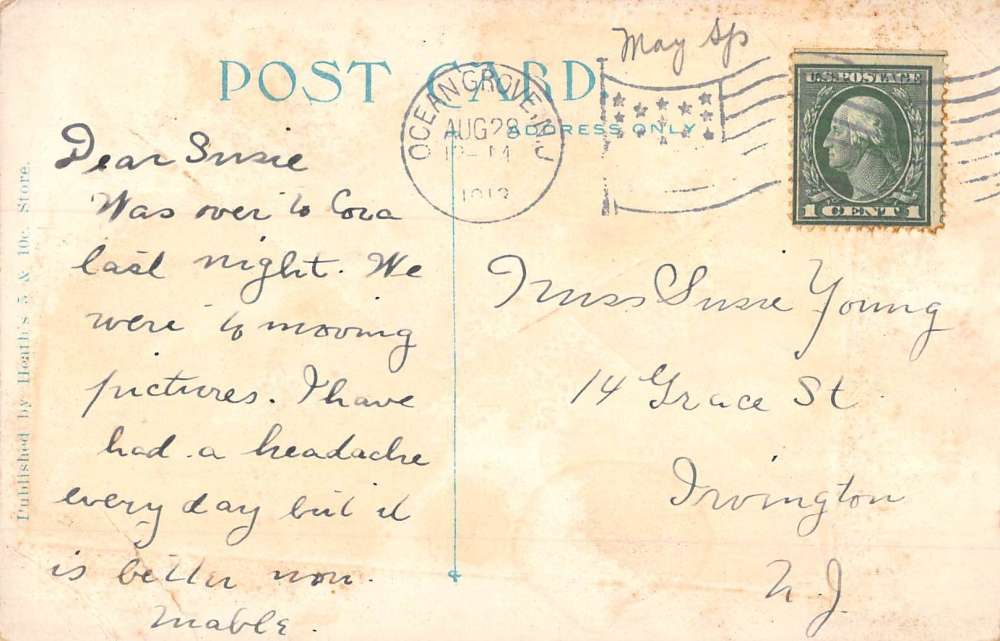 May Sp
POST CARD
OCEAN GROVE, N.J.
AUG 28
1913
ADDRESS ONLY
U.S. POSTAGE
1 CENT 1
Dear Susie
Was over to Cora
last night. We
were to moving
pictures. I have
had a headache
every day but it
is better now.
Mable.
Miss Susie Young
14 Grace St
Irvington
N.J.
Published by Heath's 5 & 10c. Store.